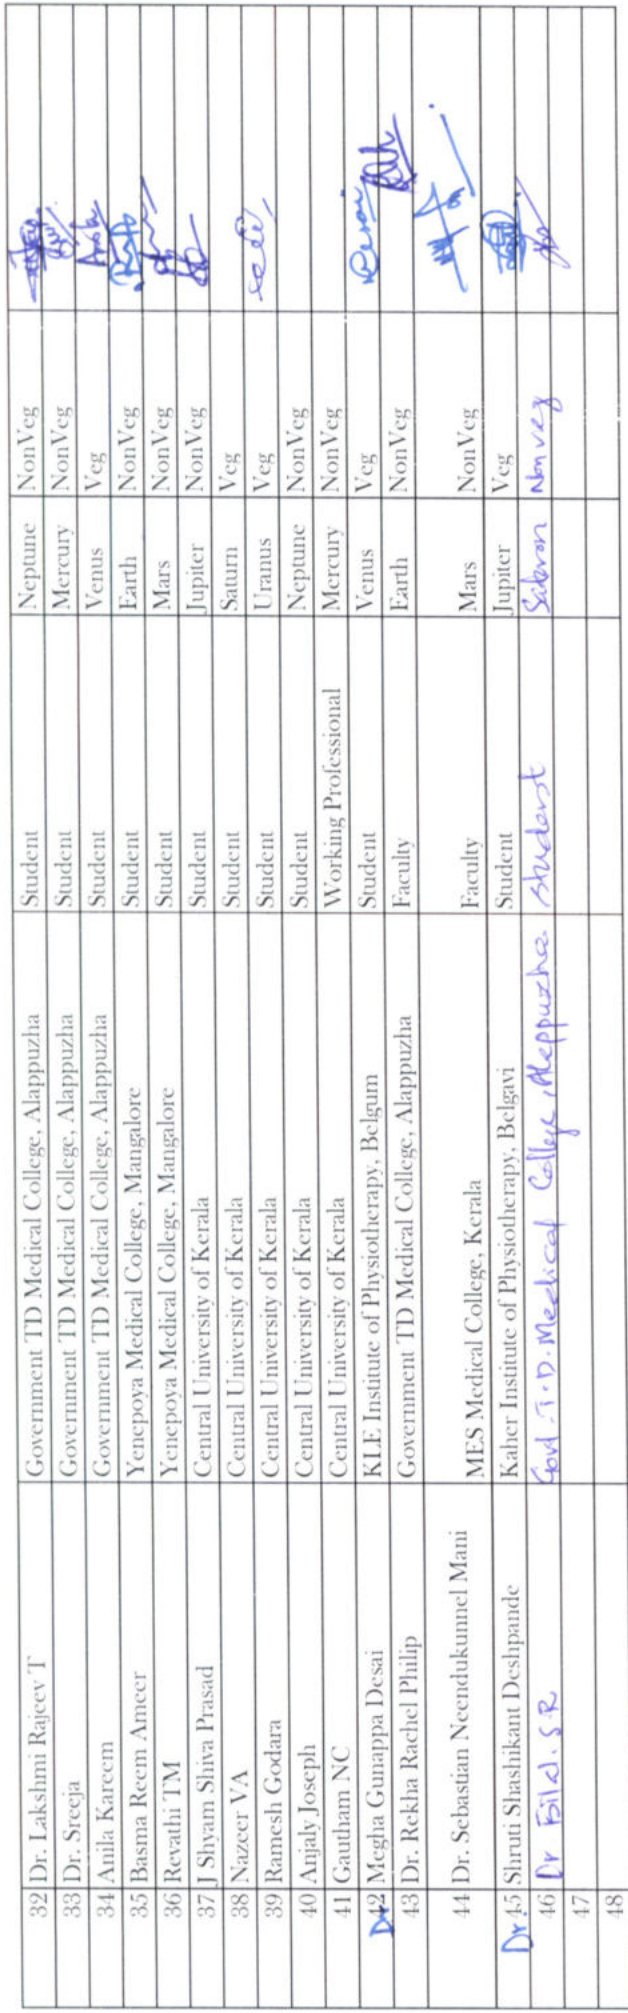 32 Dr. Lakshmi Rajeev T Government TD Medical College, Alappuzha Student Neptune NonVeg
33 Dr. Sreeja Government TD Medical College, Alappuzha Student Mercury NonVeg
34 Anila Kareem Government TD Medical College, Alappuzha Student Venus Veg
35 Basma Reem Ameer Yenepoya Medical College, Mangalore Student Earth NonVeg
36 Revathi TM Yenepoya Medical College, Mangalore Student Mars NonVeg
37 J Shyam Shiva Prasad Central University of Kerala Student Jupiter NonVeg
38 Nazeer VA Central University of Kerala Student Saturn Veg
39 Ramesh Godara Central University of Kerala Student Uranus Veg
40 Anjaly Joseph Central University of Kerala Student Neptune NonVeg
41 Gautham NC Central University of Kerala Working Professional Mercury NonVeg
Dr. 42 Megha Gunappa Desai KLE Institute of Physiotherapy, Belgum Student Venus Veg
43 Dr. Rekha Rachel Philip Government TD Medical College, Alappuzha Faculty Earth NonVeg
44 Dr. Sebastian Neendukunnel Mani MES Medical College, Kerala Faculty Mars NonVeg
Dr. 45 Shruti Shashikant Deshpande Kaher Institute of Physiotherapy, Belgavi Student Jupiter Veg
46 Dr Bilal. S.R Govt. T.D. Medical College, Aleppuzha student Non veg
47
48